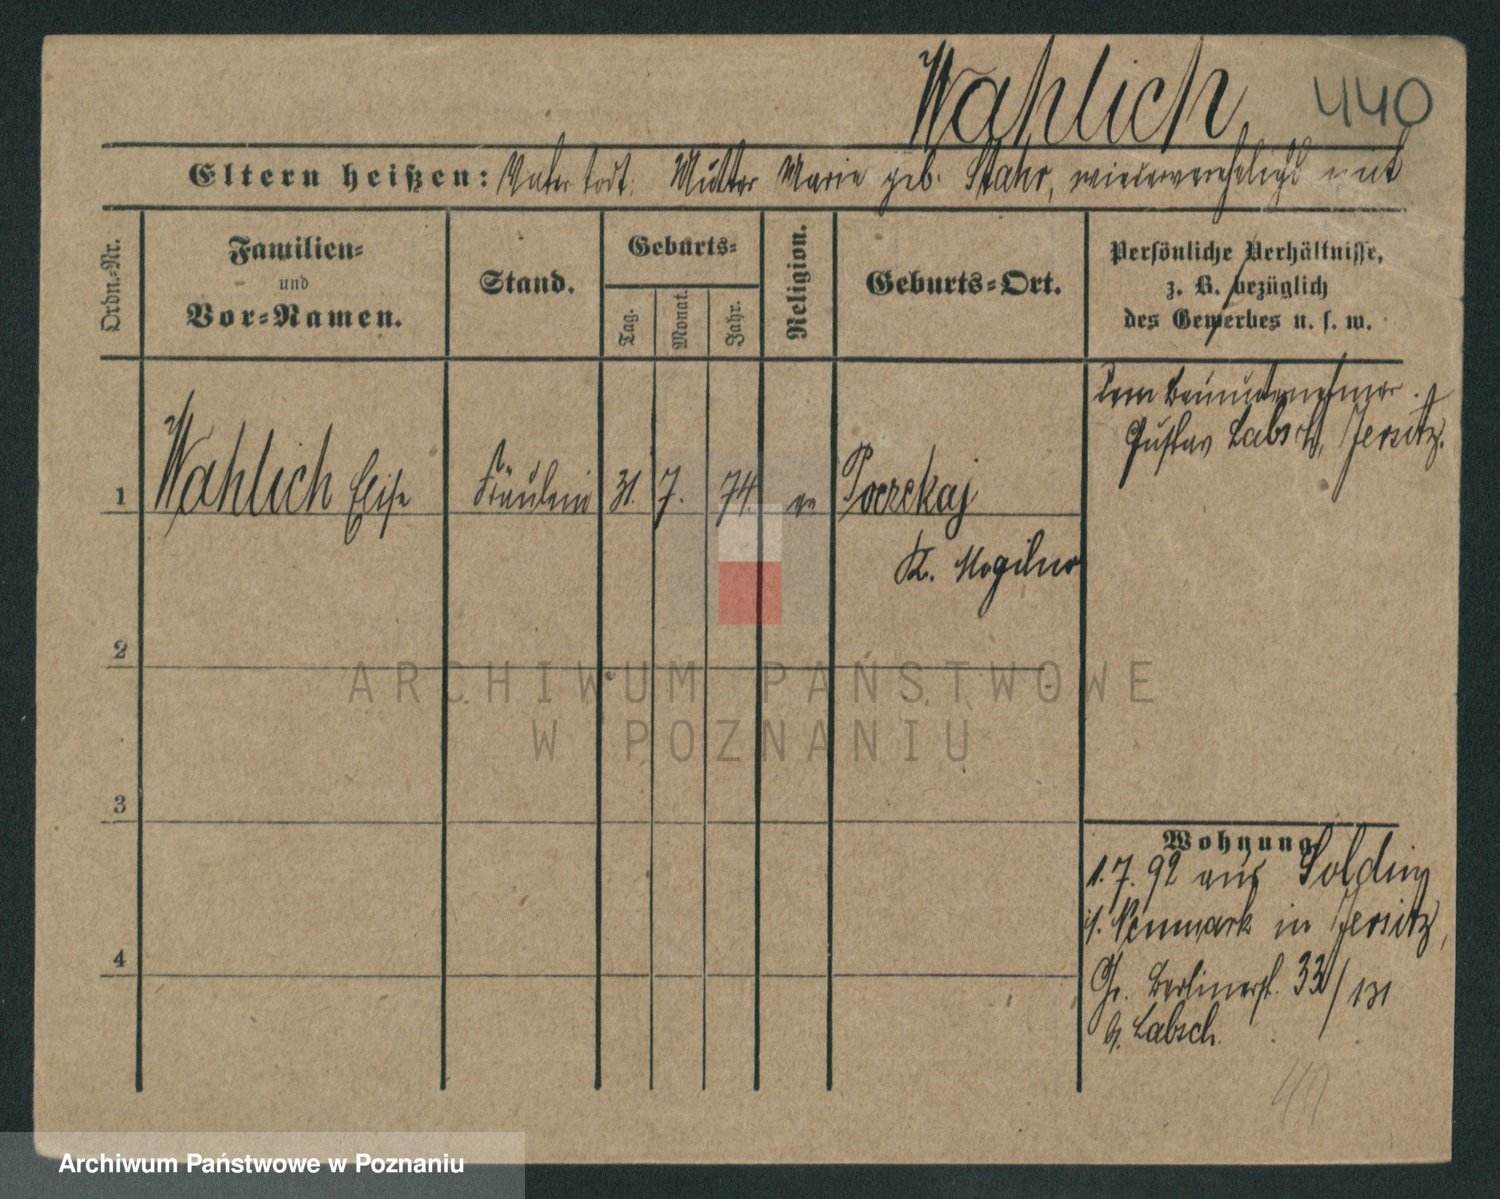 Wahlich 440
Eltern heißen: Vater todt. Mutter Marie geb. Stahr, wiederverehelicht mit
Ordn.-Nr.
Familien-
und
Vor-Namen.
Stand.
Geburts-
Tag.
Monat.
Jahr.
Religion.
Geburts-Ort.
Persönliche Verhältnisse,
z. B. bezüglich
des Gewerbes u. s. w.
dem Bauunternehmer
Gustav Labsch, Jersitz.
1 Wahlich Elise Fräulein 31. 7. 74. ev Poczekaj
K. Mogilno
2
3
4
Wohnung
1.7.92 aus Soldin
i/. Neumark in Jersitz,
Gr. Berlinerst. 33/131
b. Labsch.
ARCHIWUM PAŃSTWOWE
W POZNANIU
Archiwum Państwowe w Poznaniu